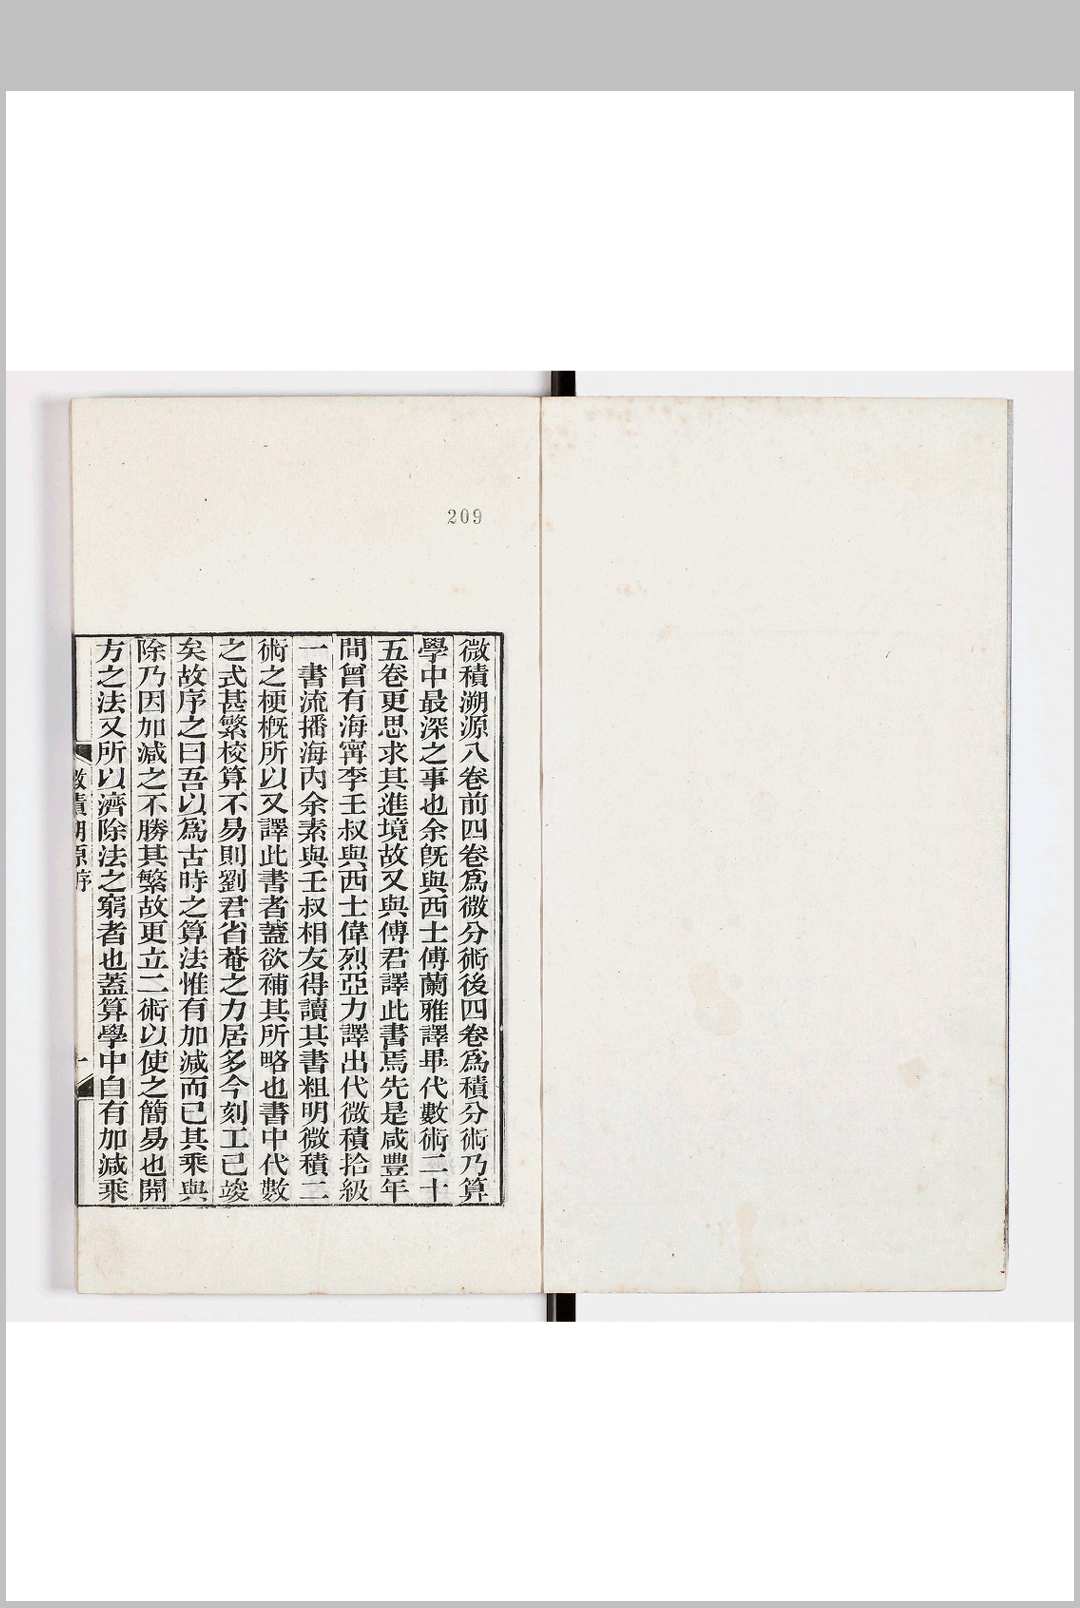 209
微積溯源八卷前四卷爲微分術後四卷爲積分術乃算
學中最深之事也余旣與西士傅蘭雅譯畢代數術二十
五卷更思求其進境故又與傅君譯此書焉先是咸豐年
間曾有海甯李壬叔與西士偉烈亞力譯出代微積拾級
一書流播海內余素與壬叔相友得讀其書粗明微積二
術之梗概所以又譯此書者蓋欲補其所略也書中代數
之式甚繁校算不易則劉君省菴之力居多今刻工已竣
矣故序之曰吾以爲古時之算法惟有加減而已其乘與
除乃因加減之不勝其繁故更立二術以使之簡易也開
方之法又所以濟除法之窮者也蓋算學中自有加減乘
微積溯源序
一